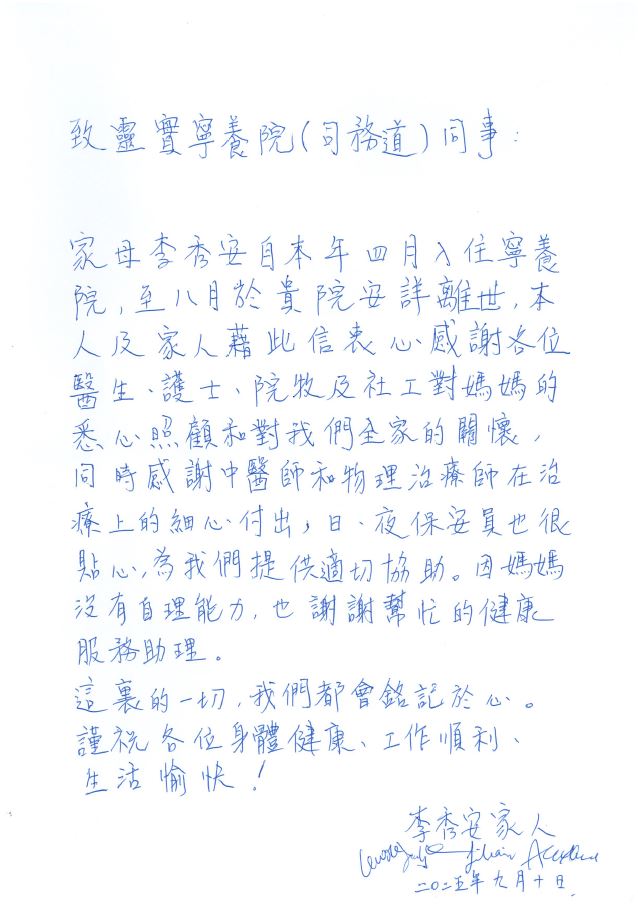 致靈實寧養院(司務道)同事:
家母李秀安自本年四月入住寧養
院,至八月於貴院安詳離世,本
人及家人藉此信衷心感謝各位
醫生、護士、院牧及社工對媽媽的
悉心照顧和對我們全家的關懷,
同時感謝中醫師和物理治療師在治
療上的細心付出,日、夜保安員也很
貼心,為我們提供適切協助。因媽媽
沒有自理能力,也謝謝幫忙的健康
服務助理。
這裏的一切,我們都會銘記於心。
謹祝各位身體健康、工作順利、
生活愉快!
李秀安家人
二〇二五年九月十日